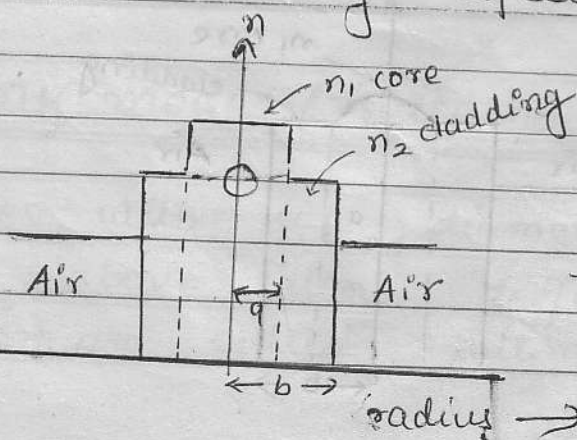 n
n1 core
n2 cladding
Air
a
Air
b
radius